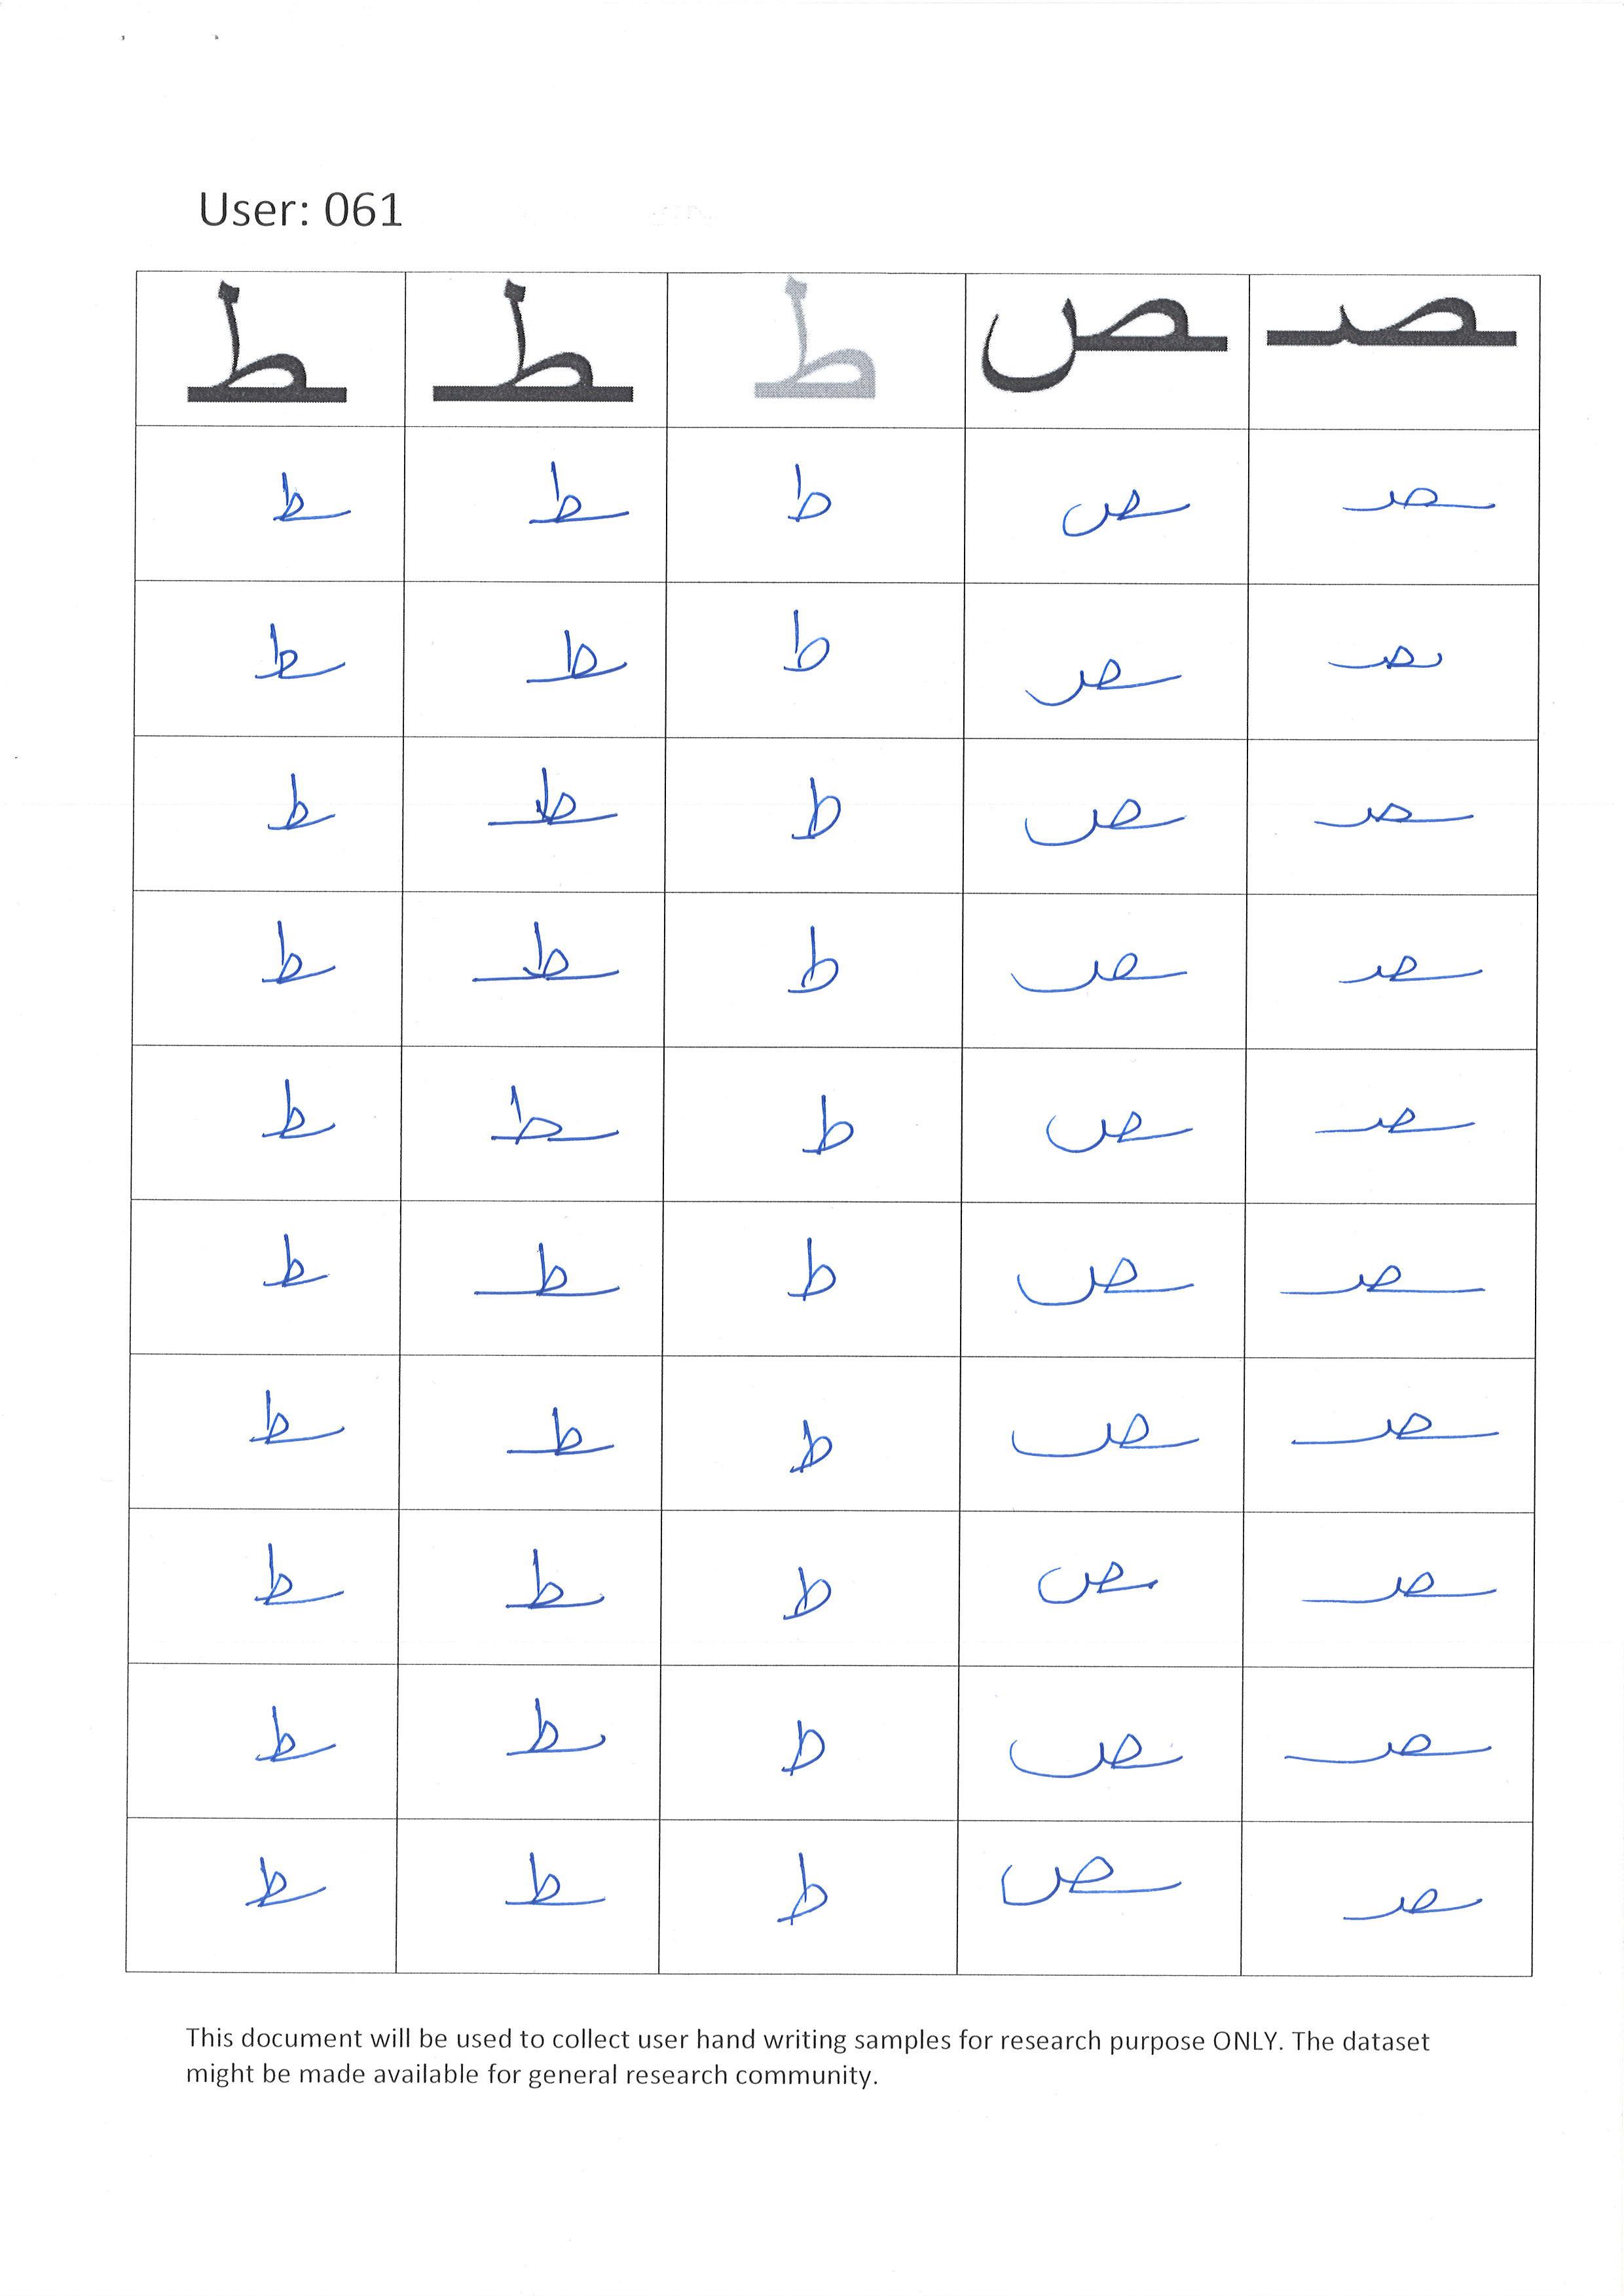 User: 061
ـصـ ـص ط ـطـ ـط
ـصـ ـص ط ـطـ ـط
ـصـ ـص ط ـطـ ـط
ـصـ ـص ط ـطـ ـط
ـصـ ـص ط ـطـ ـط
ـصـ ـص ط ـطـ ـط
ـصـ ـص ط ـطـ ـط
ـصـ ـص ط ـطـ ـط
ـصـ ـص ط ـطـ ـط
ـصـ ـص ط ـطـ ـط
ـصـ ـص ط ـطـ ـط
This document will be used to collect user hand writing samples for research purpose ONLY. The dataset
might be made available for general research community.